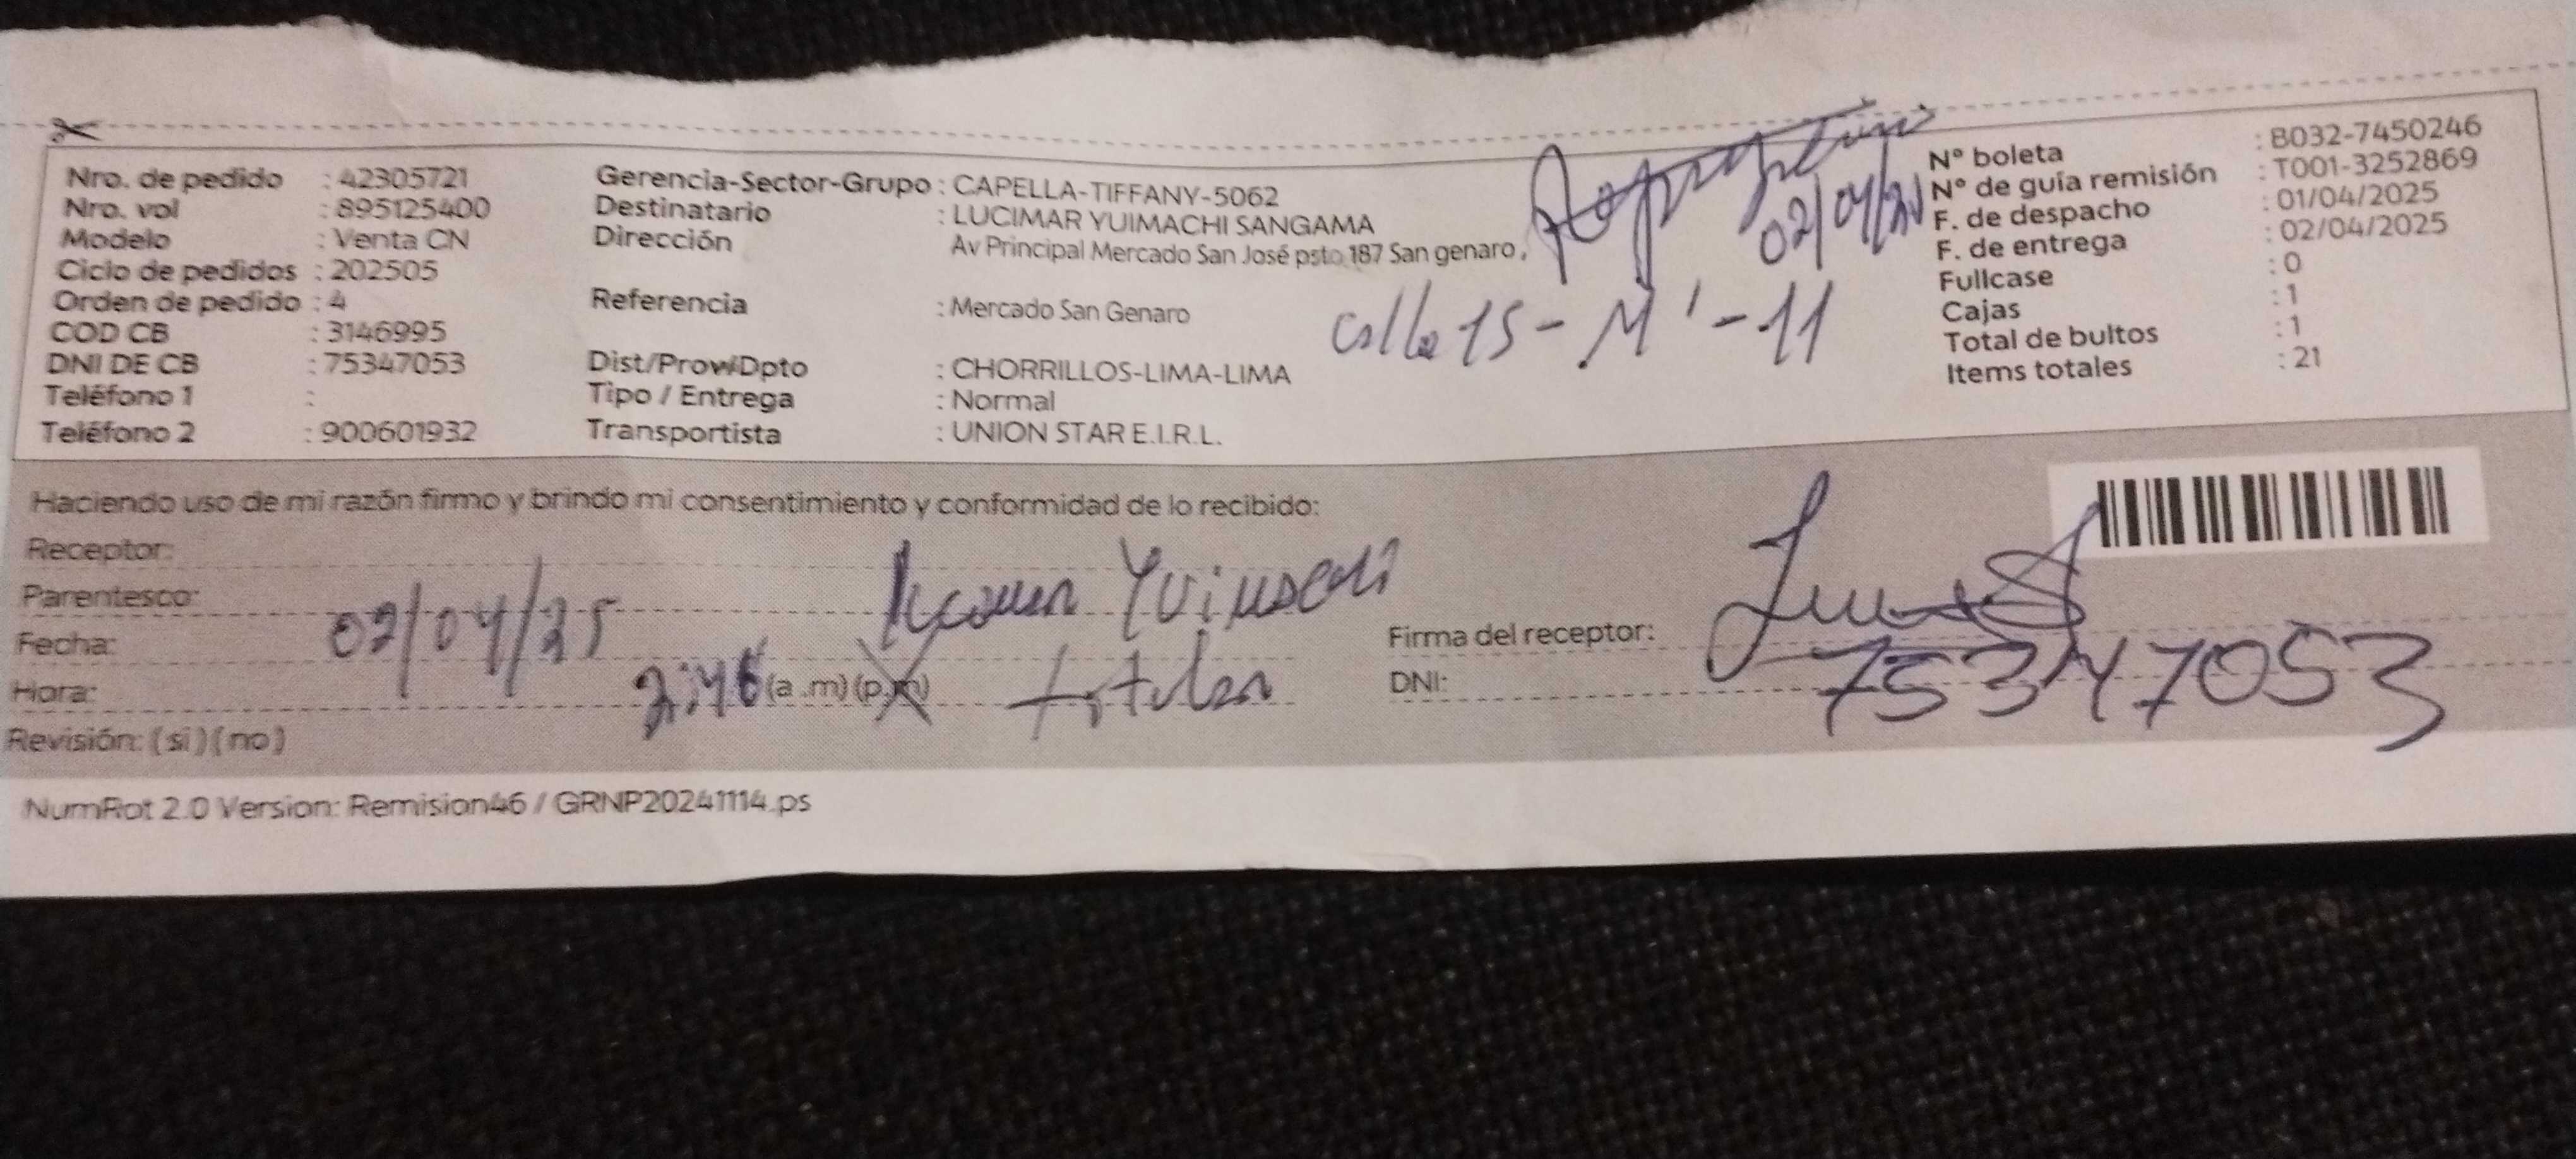 Nro. de pedido : 42305721
Nro. vol : 895125400
Modelo : Venta CN
Ciclo de pedidos : 202505
Orden de pedido : 4
COD CB : 3146995
DNI DE CB : 75347053
Teléfono 1 :
Teléfono 2 : 900601932
Gerencia-Sector-Grupo : CAPELLA-TIFFANY-5062
Destinatario : LUCIMAR YUIMACHI SANGAMA
Dirección
Av Principal Mercado San José psto 187 San genaro ,
Referencia : Mercado San Genaro
Dist/Prov/Dpto : CHORRILLOS-LIMA-LIMA
Tipo / Entrega : Normal
Transportista : UNION STAR E.I.R.L.
02/04/25
calle 15 - M' - 11
N° boleta : B032-7450246
N° de guía remisión : T001-3252869
F. de despacho : 01/04/2025
F. de entrega : 02/04/2025
Fullcase : 0
Cajas : 1
Total de bultos : 1
Items totales : 21
Haciendo uso de mi razón firmo y brindo mi consentimiento y conformidad de lo recibido:
Receptor:
Parentesco:
Fecha: 02/04/25
Hora: 2:46 (a .m) (p.m)
titular
Revisión: ( si ) ( no )
Firma del receptor:
DNI: 75347053
NumRot 2.0 Version: Remision46 / GRNP20241114.ps